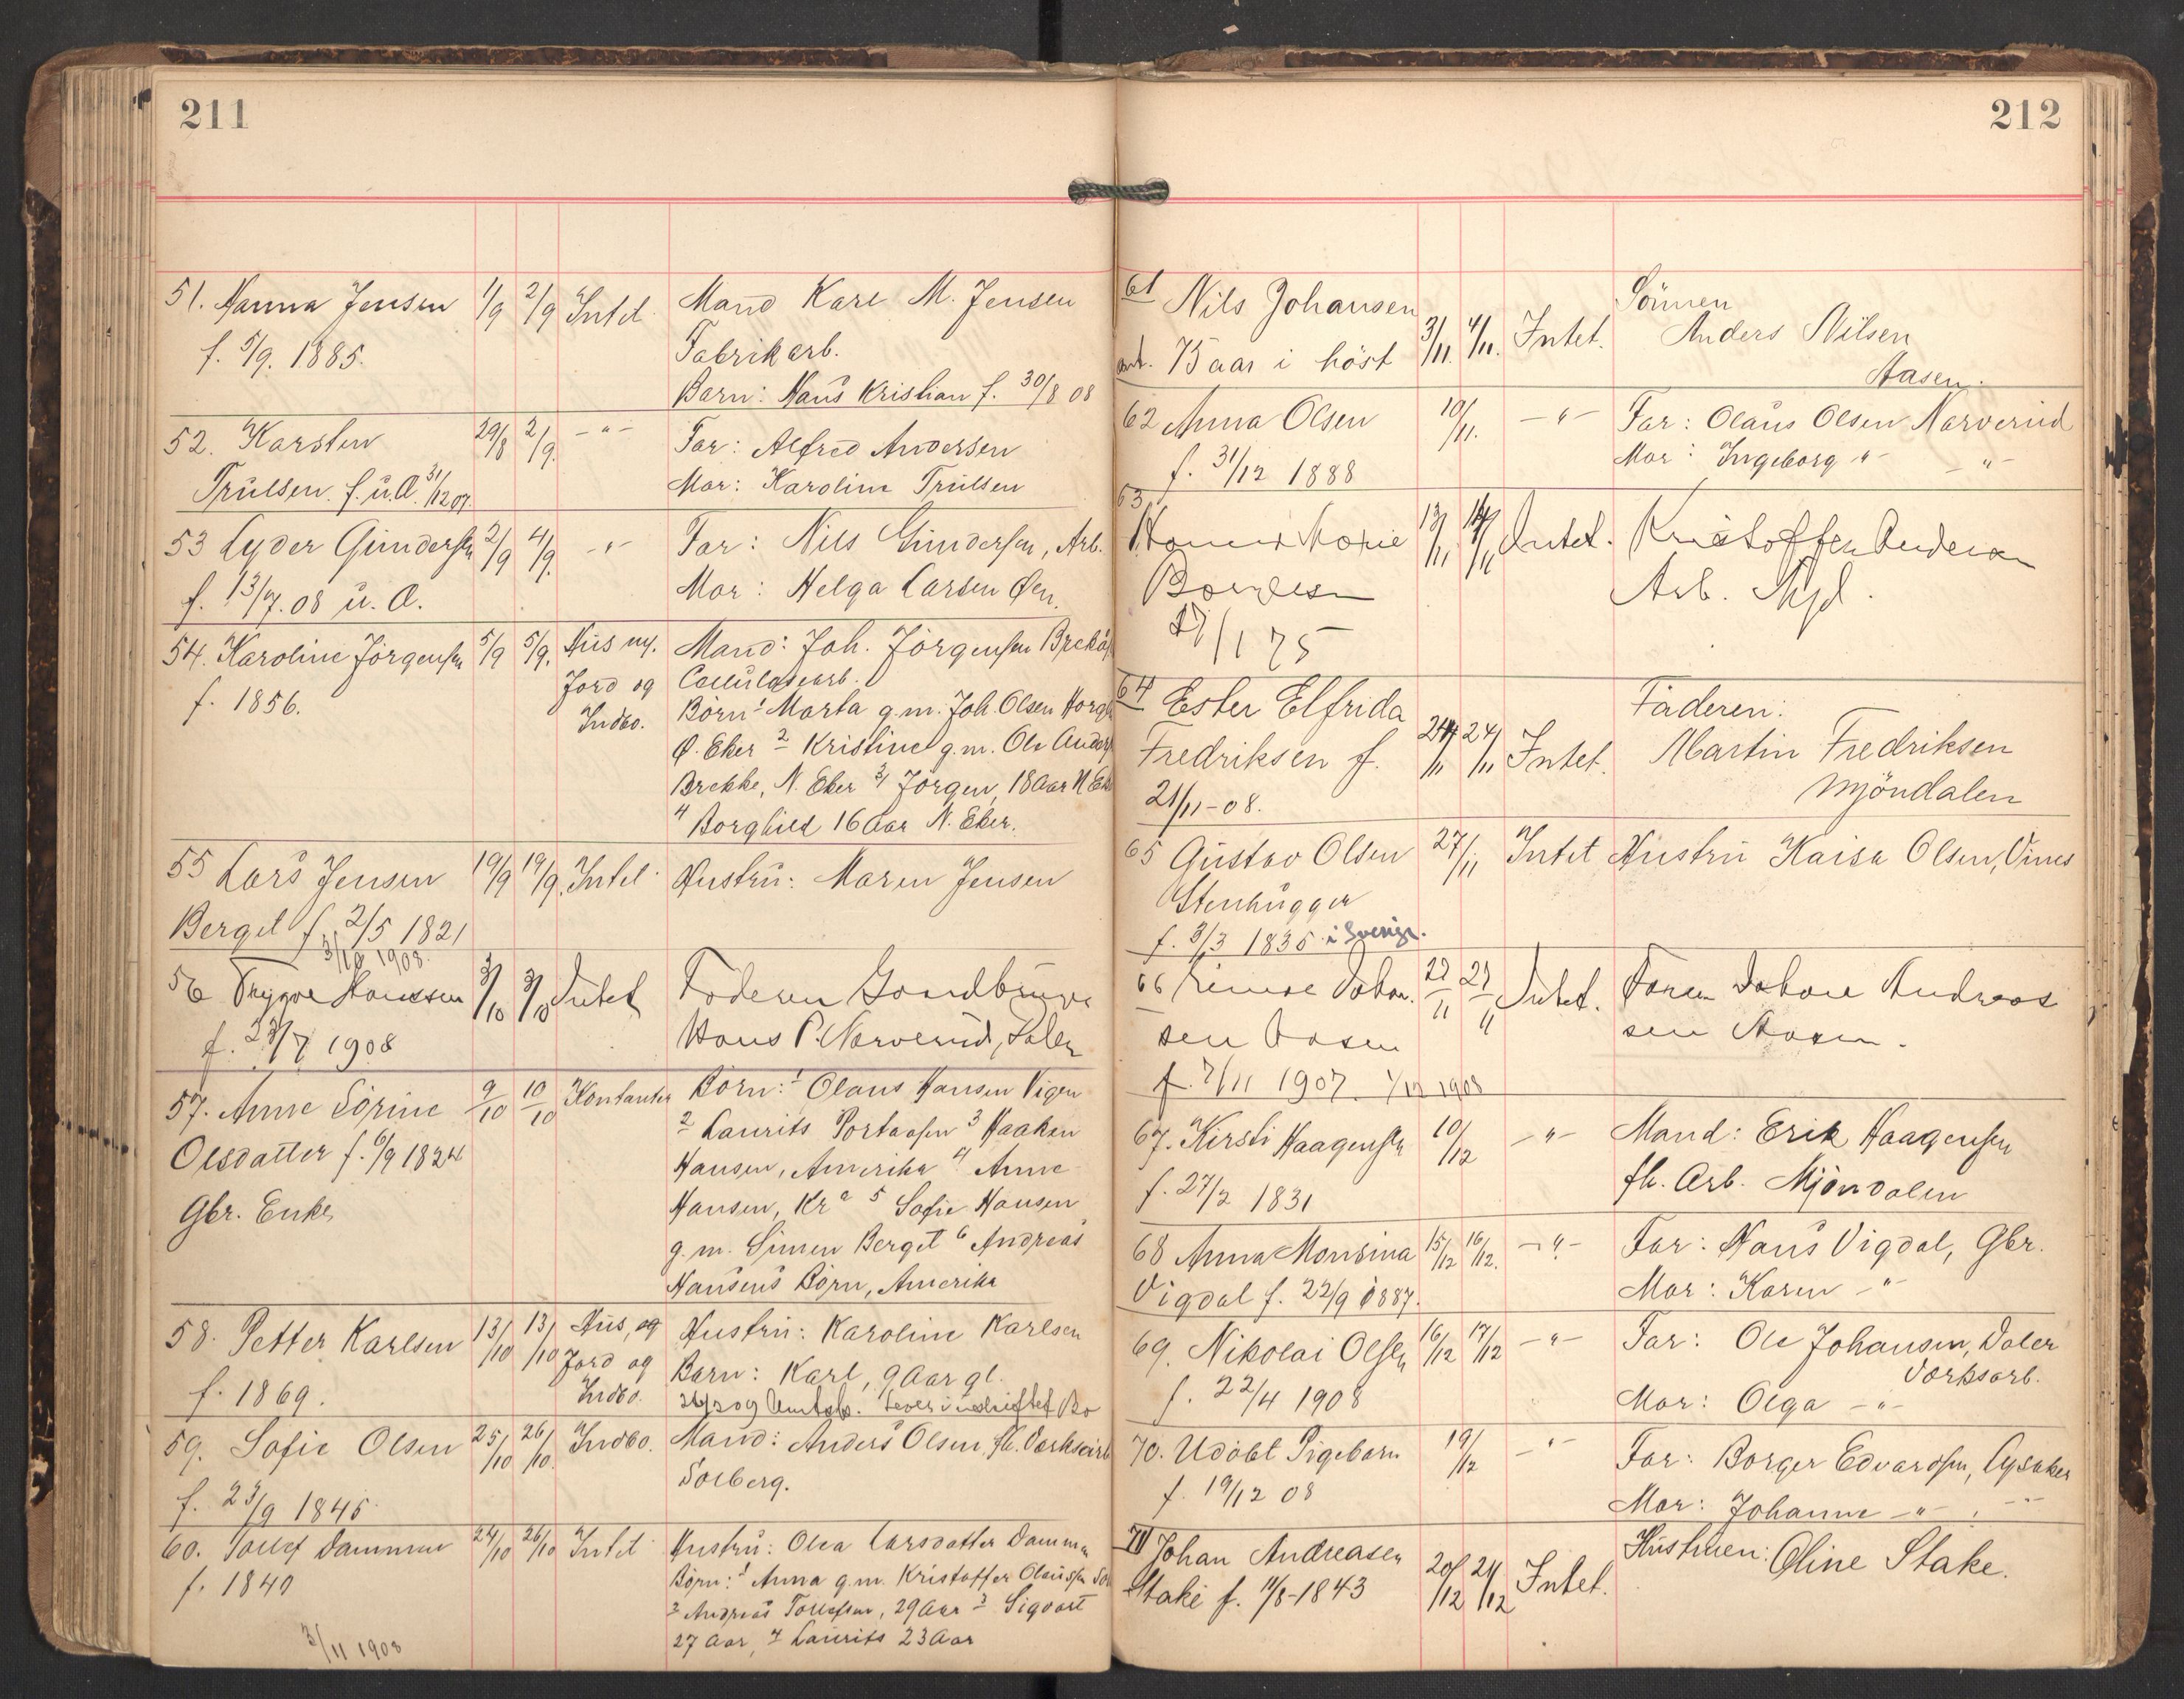 211
51. Hanna Jensen 1/9 2/9 Intet Mand Karl M. Jensen
f. 5/9. 1885. Fabrikarb.
Barn: Hans Kristian f. 30/8 08
52. Karsten 29/8 2/9. -"- Far: Alfred Andersen
Trulsen. f. u.Æ. 31/12 07. Mor: Karoline Trulsen
53 Lyder Gundersen 2/9 4/9. -"- Far: Nils Gundersen, Arb.
f. 13/7. 08 u. Æ. Mor: Helga Larsen Øen.
54. Karoline Jörgensen 5/9 5/9. Hus m. Mand: Joh. Jörgensen
f. 1856. Jord og Cellulosearb.
Indbo. Börn: 1 Marta g.m. Joh. Olsen
Ø. Eker 2 Kristine g.m. Ole
Brekke, N. Eker 3/ Jörgen, 18 Aar N. Eker
4 Borghild 16 Aar N. Eker.
55 Lars Jensen 19/9 19/9. Intet Hustru: Maren Jensen
Berget f. 2/5 1821
3/10 1908.
56 Trygve Hanssen 3/10 3/10 Intet Faderen Gaardbruger
f. 23/7 1908 Hans P. Narverud,
57. Anne Sörine 9/10 10/10 Kontanter Börn: 1 Olaus Hansen Vigen
Olsdatter f. 6/9 1824 2 Laurits Portaasen 3 Haaken
Gbr. Enke Hansen, Amerika 4 Anne
Hansen, Kra 5 Sofie Hansen
g.m. Simen Berget 6 Andreas
Hansens Börn, Amerika
58. Petter Karlsen 13/10 13/10 Hus, og Hustru: Karoline Karlsen
f. 1869. Jord og Barn: Karl, 9 Aar gl.
Indbo. Lever i uskiftet Bo
59. Sofie Olsen 25/10 26/10. Indbo. Mand: Anders Olsen, fh. Værksarb
f. 23/9 1845 Solberg.
60. Tollef Dammen 24/10 26/10 Intet Hustru: Olea Larsdatter Dammen
f. 1840 Börn: 1 Anna g.m. Kristoffer Olaussen
2 Andreas Tollefsen, 29 Aar 3 Sigvart
27 Aar, 4 Laurits 23 Aar
3/11 1908
212
61 Nils Johansen 3/11. 4/11. Intet. Sönnen
ant. 75 aar i höst Anders Nilsen
Aasen.
62 Anna Olsen 10/11. -"- Far: Olaus Olsen Narverud
f. 31/12 1888 Mor: Ingeborg -"- -"-
63 Hanna Marie 13/11 14/11 Intet. Kristoffer Andersen
Arb. Mjd.
27/1 75
64 Ester Elfrida 24/11 24/11 Intet. Faderen:
Fredriksen f. Martin Fredriksen
21/11-08. Mjöndalen
65 Gustav Olsen 27/11 Intet Hustru Kaisa Olsen, Vines
Stenhugger
f. 3/3 1835 i Sverige.
66 Johan- 27/11 Intet. Faren Johan Andreas
sen Aasen sen Aasen.
f. 7/11 1907. 1/12 1908
67. Kirsti Haagensen 10/12 -"- Mand: Erik Haagensen
f. 27/2 1831 fh. Arb. Mjöndalen
68 Anna Monsina 15/12 16/12. -"- Far: Hans Vigdal, Gbr.
Vigdal f. 22/9 1887. Mor: Karen -"-
69. Nikolai Olsen 16/12 17/12 -"- Far: Ole Johansen, Daler
Værksarb.
f. 22/4 1908 Mor: Olga -"-
70. Udöbt Pigebarn 19/12 -"- Far: Borger Edvardsen, Lysaker
f. 19/12 08 Mor: Johanne -"- -"-
71 Johan Andreasen 20/12 24/12 Intet. Hustruen: Oline Stake.
Stake f. 11/8-1843